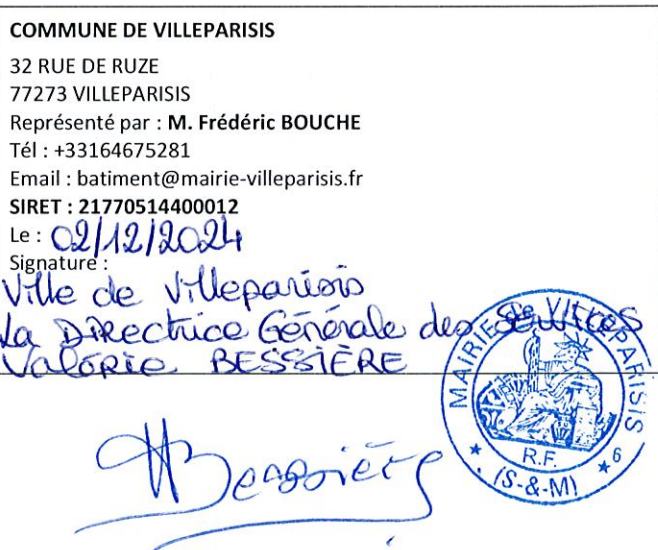 COMMUNE DE VILLEPARISIS
32 RUE DE RUZE
77273 VILLEPARISIS
Représenté par : M. Frédéric BOUCHE
Tél : +33164675281
Email : batiment@mairie-villeparisis.fr
SIRET : 21770514400012
Le : 02/12/2024
Signature :
Ville de Villeparisis
La Directrice Générale des Services
Valérie BESSIÈRE
MAIRIE DE VILLEPARISIS
R.F.
* (S-&-M) * 6
Bessière